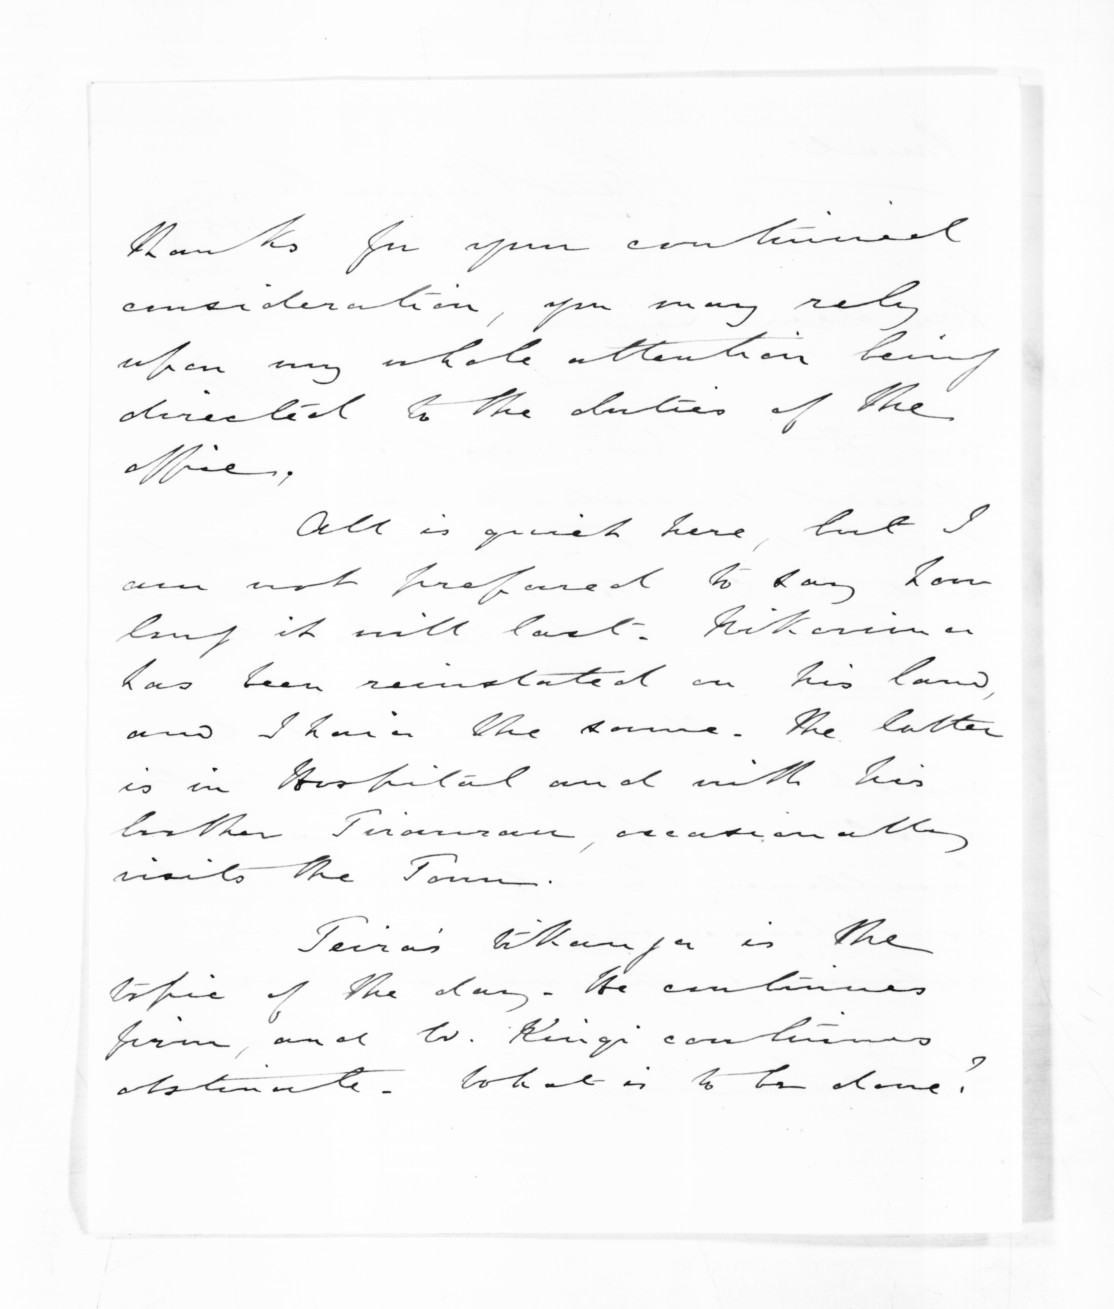 thanks for your continued
consideration, you may rely
upon my whole attention being
directed to the duties of the
office.
All is quiet here, but I
am not prepared to say how
long it will last. Nikorima
has been reinstated on his land,
and Ihaia the same. The latter
is in Hospital and with his
brother Tiraurau, occasionally
visits the Town.
Teira's tikanga is the
topic of the day. He continues
firm, and W. Kingi continues
obstinate. What is to be done?